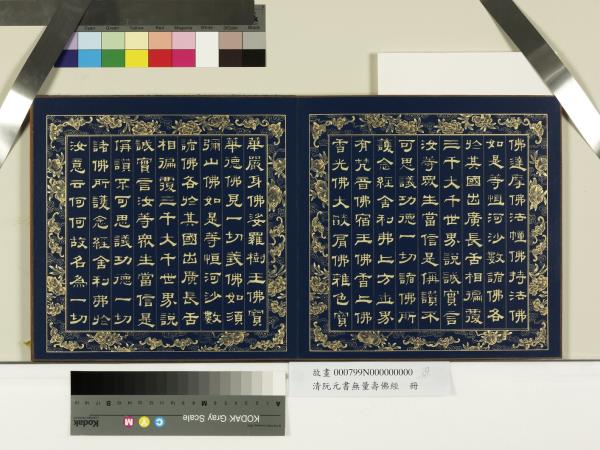 佛達摩佛法幢佛持法佛
如是等恒河沙數諸佛各
於其國出廣長舌相徧覆
三千大千世界說誠實言
汝等眾生當信是稱讚不
可思議功德一切諸佛所
護念經舍利弗上方世界
有梵音佛宿王佛香上佛
香光佛大燄肩佛雜色寶
華嚴身佛娑羅樹王佛寶
華德佛見一切義佛如須
彌山佛如是等恒河沙數
諸佛各於其國出廣長舌
相徧覆三千大千世界說
誠實言汝等眾生當信是
稱讚不可思議功德一切
諸佛所護念經舍利弗於
汝意云何何故名為一切
故畫 000799N000000000
清阮元書無量壽佛經 冊
Kodak
C Y M
KODAK Gray Scale